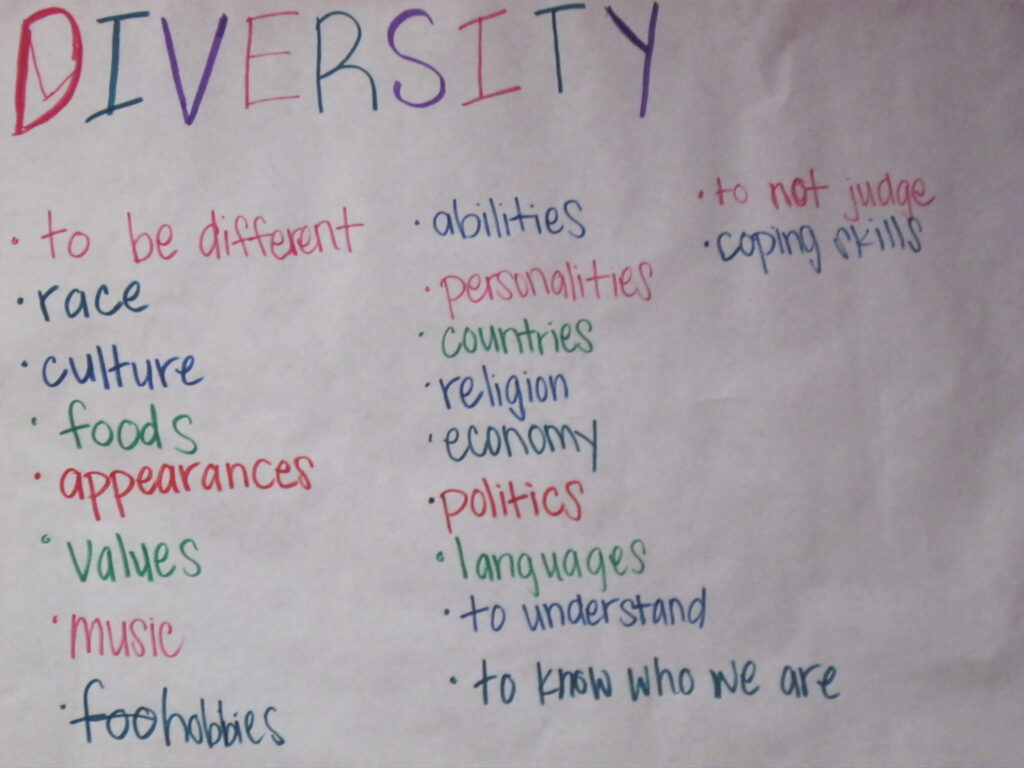 DIVERSITY
· to be different
· race
· culture
· foods
· appearances
· values
· music
· foohobbies
· abilities
· personalities
· countries
· religion
· economy
· politics
· languages
· to understand
· to know who we are
· to not judge
· coping skills